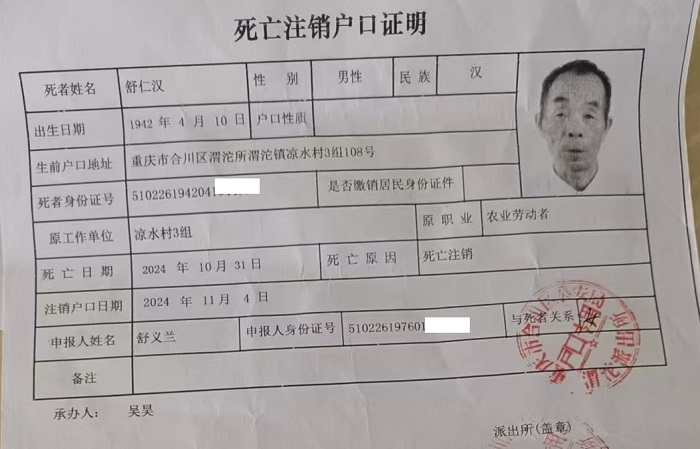 死亡注销户口证明
死者姓名 舒仁汉 性 别 男性 民 族 汉
出生日期 1942 年 4 月 10 日 户口性质
生前户口地址 重庆市合川区渭沱所渭沱镇凉水村3组108号
死者身份证号 5102261942041 是否缴销居民身份证件
原工作单位 凉水村3组 原 职 业 农业劳动者
死 亡 日 期 2024 年 10 月 31 日 死 亡 原 因 死亡注销
注销户口日期 2024 年 11 月 4 日
申报人姓名 舒义兰 申报人身份证号 510226197601 与死者关系
备注
承办人： 吴昊
派出所(盖章)